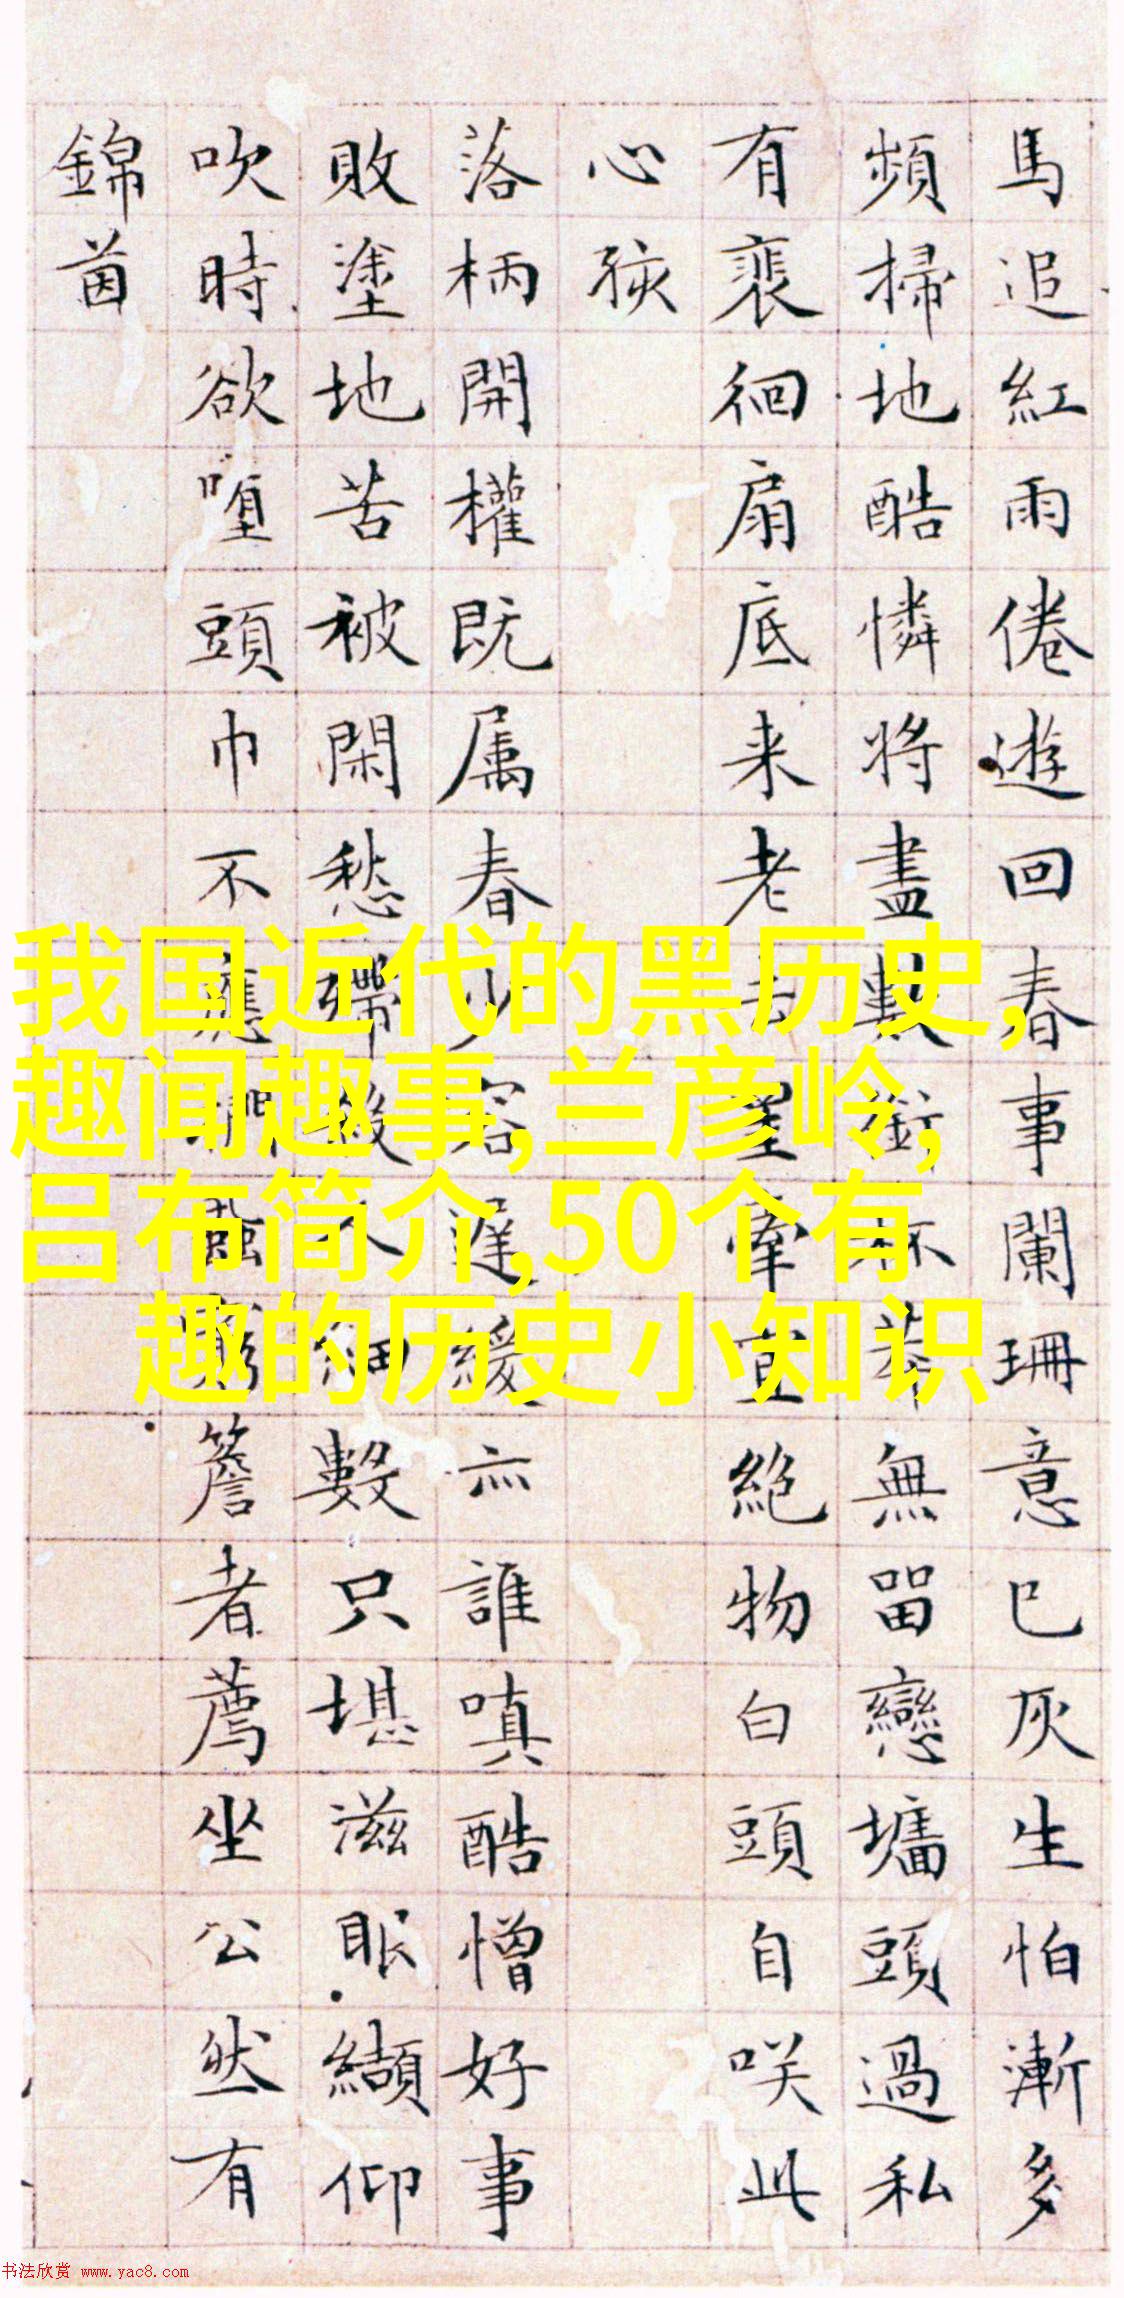 馬追紅雨倦遊回春事闌珊意已灰生怕漸多
頻掃地酷憐將盡數銜杯無畱戀墻頭過私
有裴徊扇底来老去直絕物白頭自咲此
心孩
落柄開權既属春少容遲緩亦誰嗔酷憎好事
敗塗地苦被閑愁殢人細數只堪滋眼纈仰
吹時欲墮頭巾不應捫蝨窮簷者薦坐公然有
錦茵
我国近代的黑历史,
趣闻趣事,兰彦岭,
吕布简介,50个有
趣的历史小知识
书法欣赏 www.yac8.com